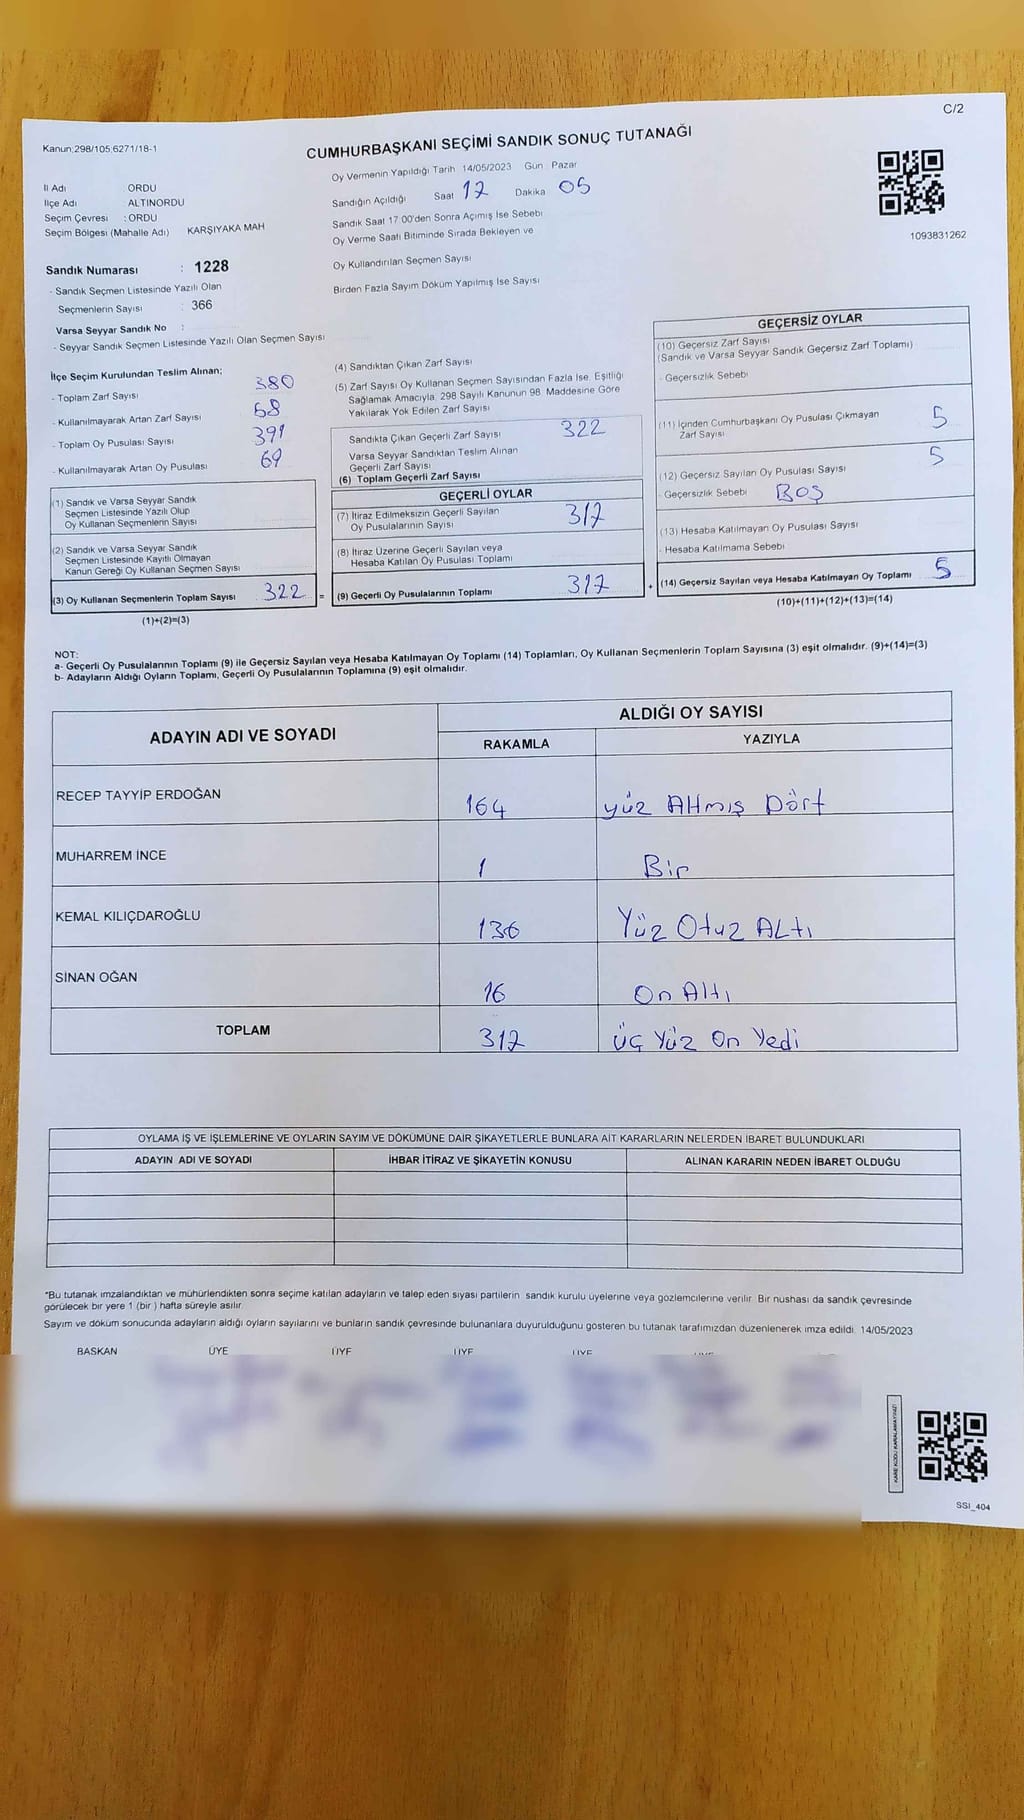 C/2
Kanun;298/105;6271/18-1
CUMHURBAŞKANI SEÇİMİ SANDIK SONUÇ TUTANAĞI
İl Adı ORDU
İlçe Adı ALTINORDU
Seçim Çevresi : ORDU
Seçim Bölgesi (Mahalle Adı) KARŞIYAKA MAH
Oy Vermenin Yapıldığı Tarih 14/05/2023 Gün Pazar
Sandığın Açıldığı Saat 17 Dakika 05
Sandık Saat 17:00'den Sonra Açımış İse Sebebi
Oy Verme Saati Bitiminde Sırada Bekleyen ve
Oy Kullandırılan Seçmen Sayısı
Birden Fazla Sayım Döküm Yapılmış İse Sayısı
1093831262
Sandık Numarası : 1228
- Sandık Seçmen Listesinde Yazılı Olan
Seçmenlerin Sayısı : 366
Varsa Seyyar Sandık No :
- Seyyar Sandık Seçmen Listesinde Yazılı Olan Seçmen Sayısı
İlçe Seçim Kurulundan Teslim Alınan;
- Toplam Zarf Sayısı 380
- Kullanılmayarak Artan Zarf Sayısı 58
- Toplam Oy Pusulası Sayısı 391
- Kullanılmayarak Artan Oy Pusulası 69
(1) Sandık ve Varsa Seyyar Sandık
Seçmen Listesinde Yazılı Olup
Oy Kullanan Seçmenlerin Sayısı
(2) Sandık ve Varsa Seyyar Sandık
Seçmen Listesinde Kayıtlı Olmayan
Kanun Gereği Oy Kullanan Seçmen Sayısı
(3) Oy Kullanan Seçmenlerin Toplam Sayısı 322 =
(1)+(2)=(3)
(4) Sandıktan Çıkan Zarf Sayısı
(5) Zarf Sayısı Oy Kullanan Seçmen Sayısından Fazla İse, Eşitliği
Sağlamak Amacıyla, 298 Sayılı Kanunun 98. Maddesine Göre
Yakılarak Yok Edilen Zarf Sayısı
Sandıkta Çıkan Geçerli Zarf Sayısı 322
Varsa Seyyar Sandıktan Teslim Alınan
Geçerli Zarf Sayısı
(6) Toplam Geçerli Zarf Sayısı
GEÇERLİ OYLAR
(7) İtiraz Edilmeksizin Geçerli Sayılan
Oy Pusulalarının Sayısı 317
(8) İtiraz Üzerine Geçerli Sayılan veya
Hesaba Katılan Oy Pusulası Toplamı
(9) Geçerli Oy Pusulalarının Toplamı 317 +
GEÇERSİZ OYLAR
(10) Geçersiz Zarf Sayısı
(Sandık ve Varsa Seyyar Sandık Geçersiz Zarf Toplamı)
- Geçersizlik Sebebi
(11) İçinden Cumhurbaşkanı Oy Pusulası Çıkmayan
Zarf Sayısı 5
(12) Geçersiz Sayılan Oy Pusulası Sayısı 5
- Geçersizlik Sebebi BOŞ
(13) Hesaba Katılmayan Oy Pusulası Sayısı
- Hesaba Katılmama Sebebi
(14) Geçersiz Sayılan veya Hesaba Katılmayan Oy Toplamı 5
(10)+(11)+(12)+(13)=(14)
NOT:
a- Geçerli Oy Pusulalarının Toplamı (9) ile Geçersiz Sayılan veya Hesaba Katılmayan Oy Toplamı (14) Toplamları, Oy Kullanan Seçmenlerin Toplam Sayısına (3) eşit olmalıdır. (9)+(14)=(3)
b- Adayların Aldığı Oyların Toplamı, Geçerli Oy Pusulalarının Toplamına (9) eşit olmalıdır.
ADAYIN ADI VE SOYADI ALDIĞI OY SAYISI
RAKAMLA YAZIYLA
RECEP TAYYİP ERDOĞAN 164 yüz Altmış Dört
MUHARREM İNCE 1 Bir
KEMAL KILIÇDAROĞLU 136 Yüz Otuz ALtı
SİNAN OĞAN 16 On Altı
TOPLAM 317 üç Yüz On Yedi
OYLAMA İŞ VE İŞLEMLERİNE VE OYLARIN SAYIM VE DÖKÜMÜNE DAİR ŞİKAYETLERLE BUNLARA AİT KARARLARIN NELERDEN İBARET BULUNDUKLARI
ADAYIN ADI VE SOYADI İHBAR İTİRAZ VE ŞİKAYETİN KONUSU ALINAN KARARIN NEDEN İBARET OLDUĞU
*Bu tutanak imzalandıktan ve mühürlendikten sonra seçime katılan adayların ve talep eden siyasi partilerin sandık kurulu üyelerine veya gözlemcilerine verilir. Bir nüshası da sandık çevresinde
görülecek bir yere 1 (bir ) hafta süreyle asılır.
Sayım ve döküm sonucunda adayların aldığı oyların sayılarını ve bunların sandık çevresinde bulunanlara duyurulduğunu gösteren bu tutanak tarafımızdan düzenlenerek imza edildi. 14/05/2023
BAŞKAN ÜYE ÜYE ÜYE ÜYE
KARE KODU KARALAMAYINIZ!
SSI_404